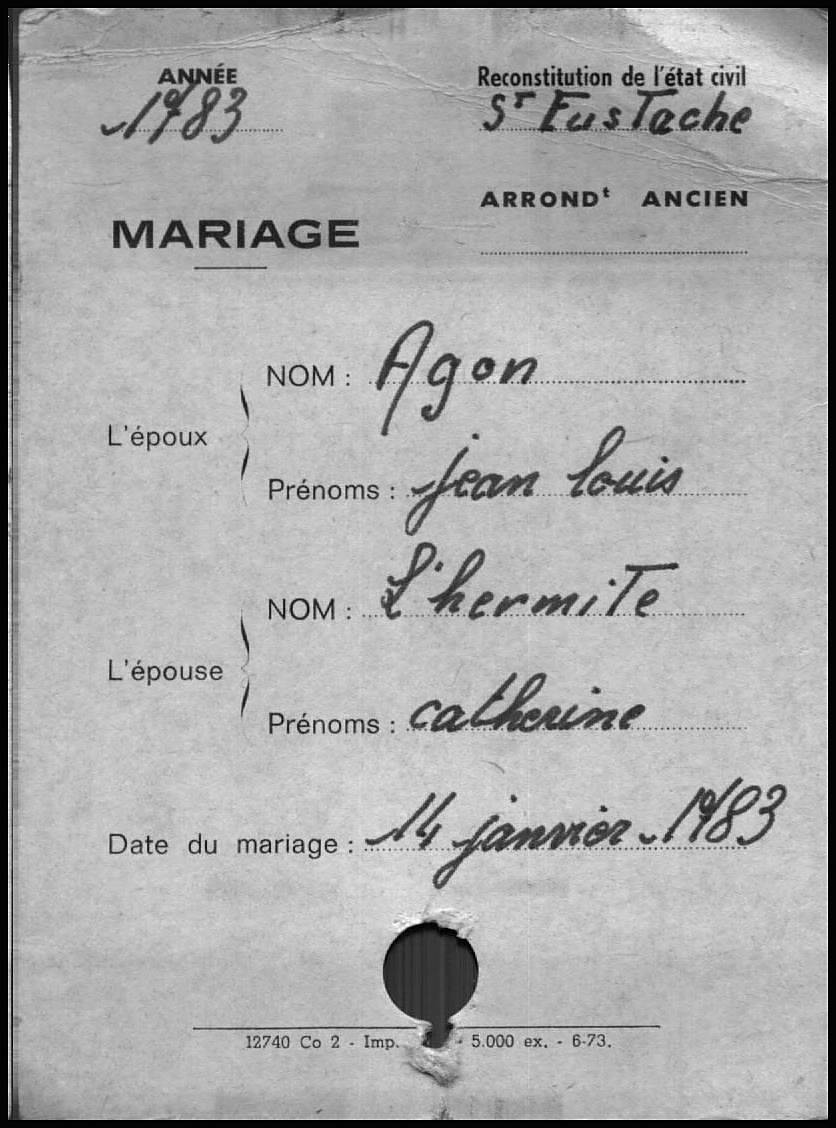 ANNÉE
1783
Reconstitution de l'état civil
St Eustache
ARRONDt ANCIEN
MARIAGE
L'époux
NOM : Agon
Prénoms : jean louis
L'épouse
NOM : L'hermite
Prénoms : catherine
Date du mariage : 14 janvier 1783
12740 Co 2 - Imp. 5.000 ex. - 6-73.